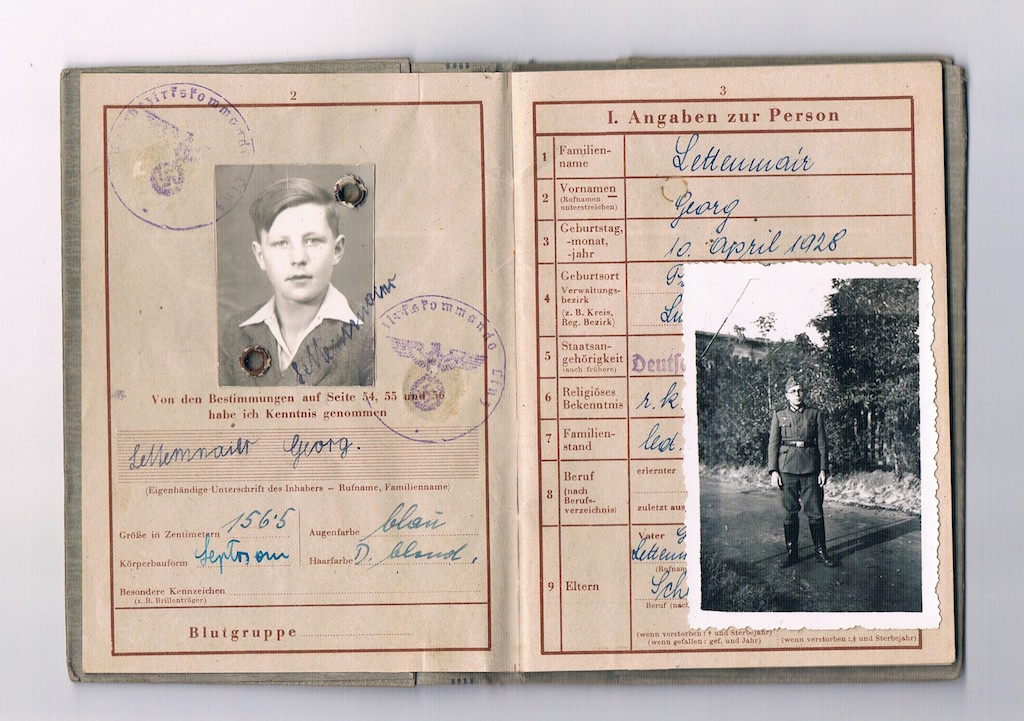 2
Von den Bestimmungen auf Seite 54, 55 und 56
habe ich Kenntnis genommen
Lettenmair Georg.
(Eigenhändige Unterschrift des Inhabers – Rufname, Familienname)
Größe in Zentimetern 156'5
Augenfarbe blau
Körperbauform Leptosom
Haarfarbe D. blond.
Besondere Kennzeichen
(z. B. Brillenträger)
Blutgruppe
3
I. Angaben zur Person
1 Familien-
name
Lettenmair
2 Vornamen
(Rufnamen
unterstreichen)
Georg
3 Geburtstag,
-monat,
-jahr
10. April 1928
4 Geburtsort
Verwaltungs-
bezirk
(z. B. Kreis,
Reg. Bezirk)
5 Staatsan-
gehörigkeit
(auch frühere)
6 Religiöses
Bekenntnis
r. k.
7 Familien-
stand
led.
8 Beruf
(nach
Berufs-
verzeichnis)
erlernter
zuletzt aus
9 Eltern
Vater
Beruf (nac
(wenn verstorben: † und Sterbejahr)
(wenn gefallen: gef. und Jahr)
(wenn verstorben: † und Sterbejahr)